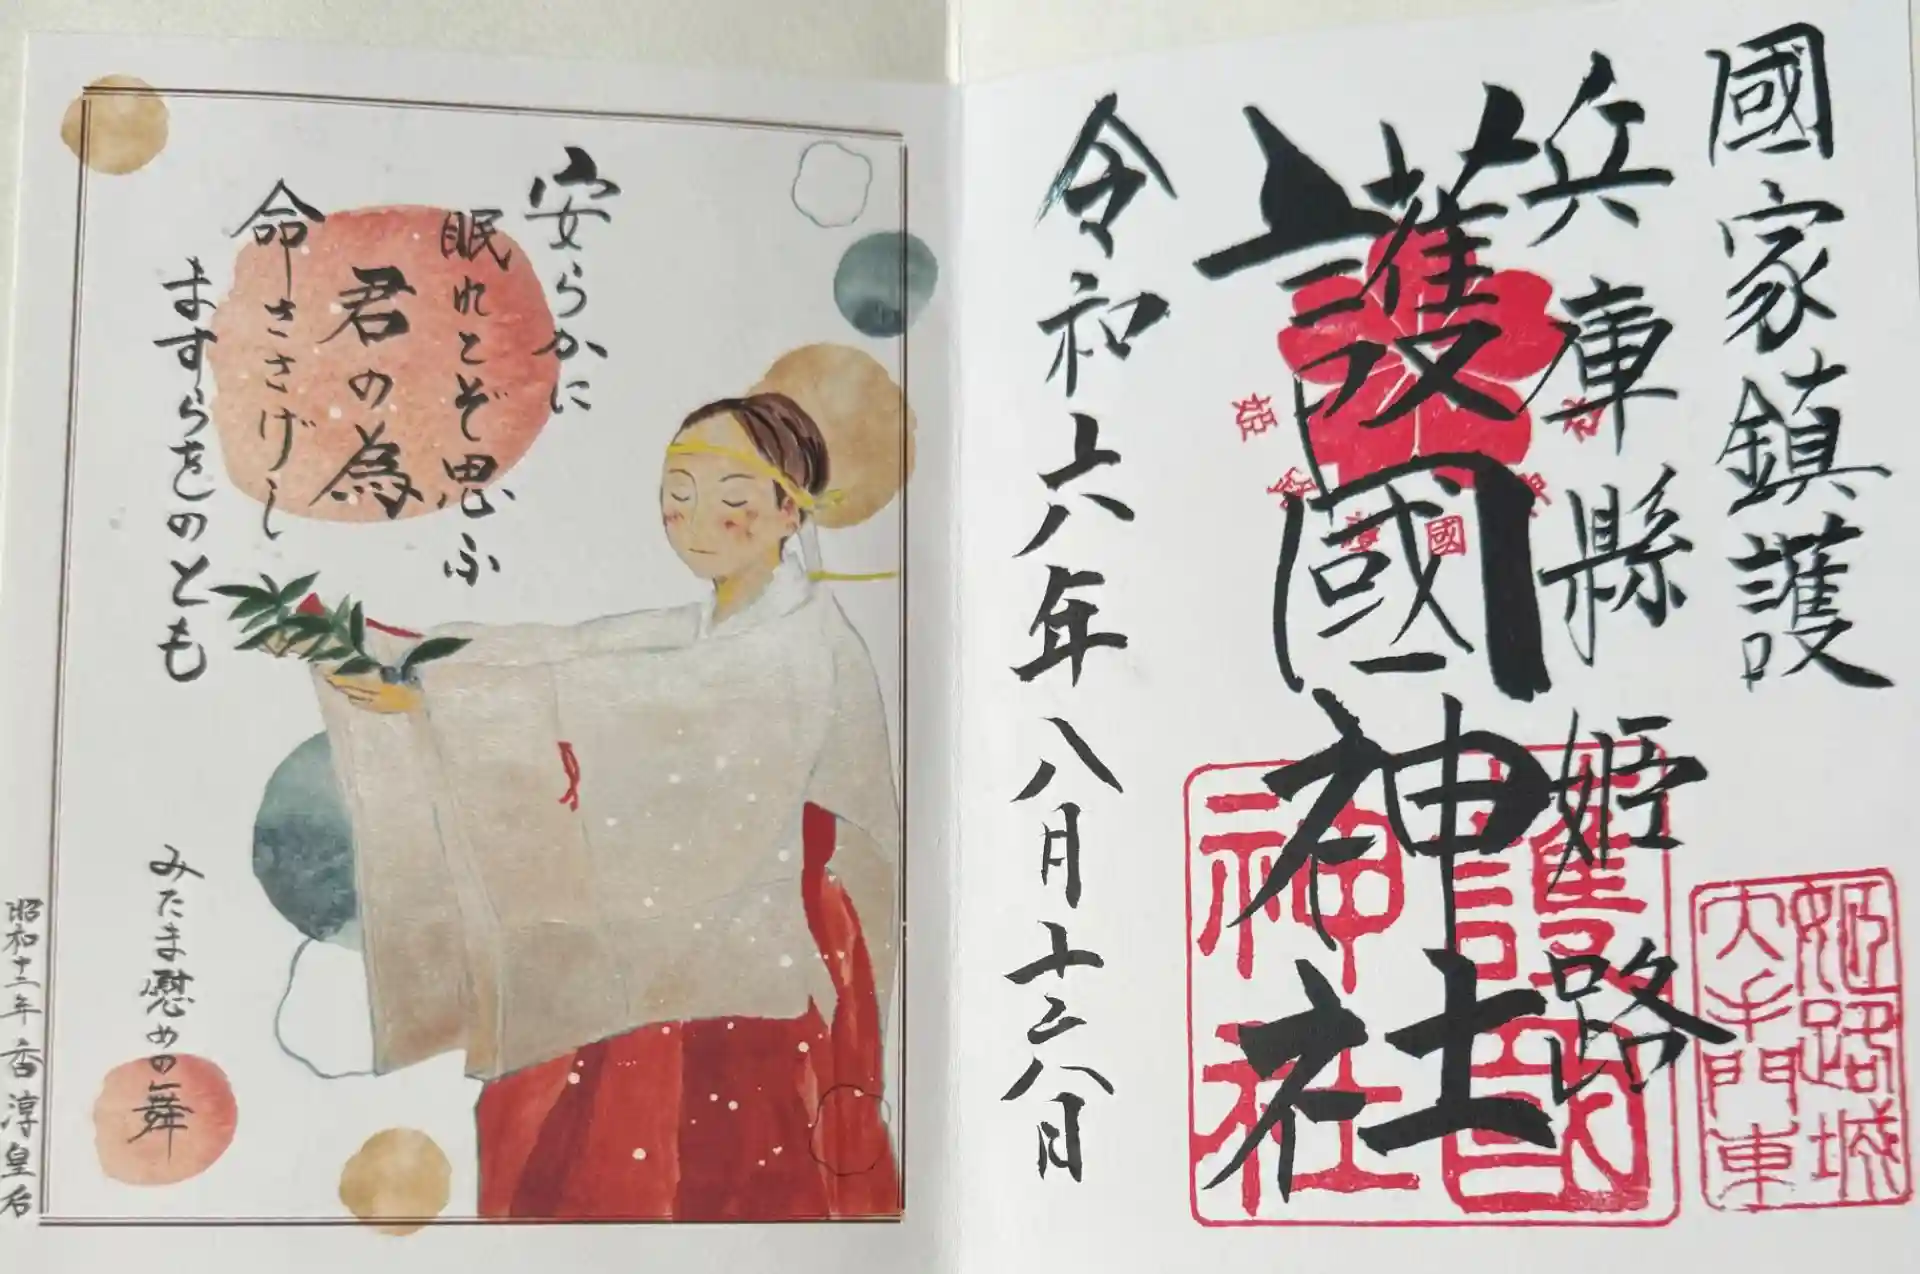 國家鎮護
兵庫縣姫路
護國神社
令和六年八月十六日
護國
神社
姫路城
大手門東
安らかに
眠れとぞ思ふ
君の為
命ささげし
ますらをのとも
みたま慰めの舞
昭和十二年香淳皇后